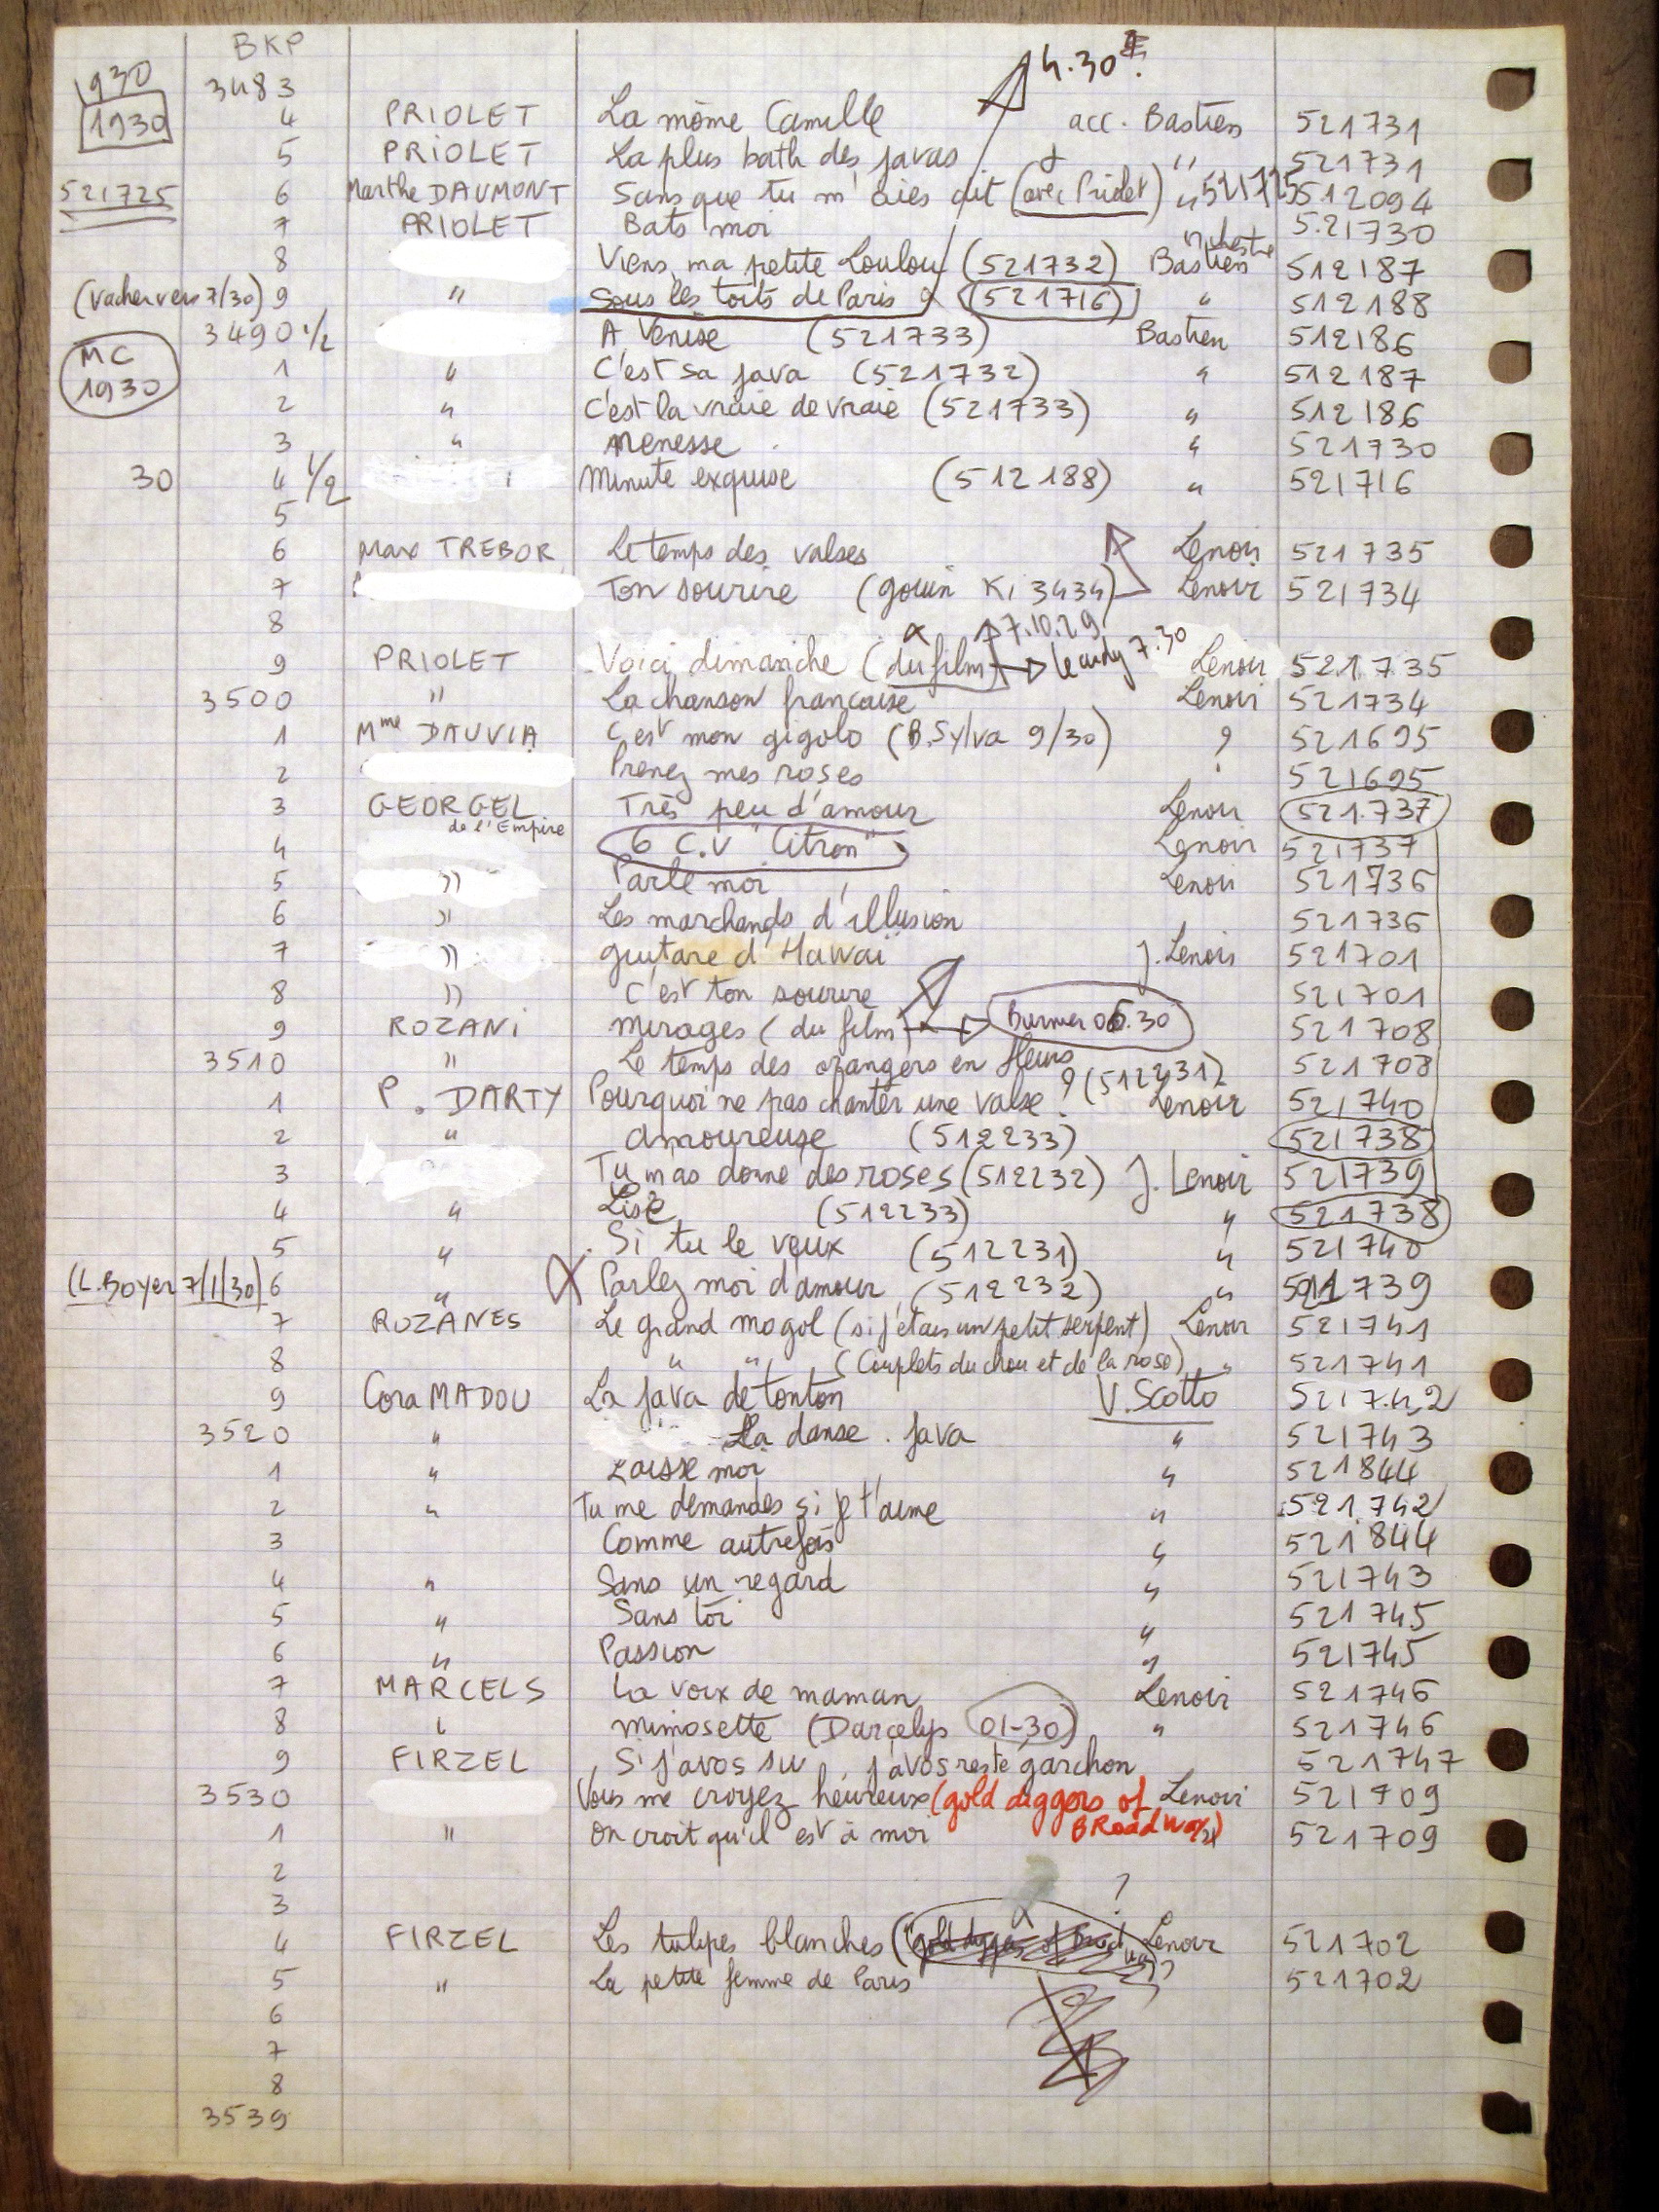 BKP
1930 3483 4.30 ?
1930 4 PRIOLET La môme Camille acc. Bastien 521731
5 PRIOLET La plus bath des javas " 521731
521725 6 Marthe DAUMONT Sans que tu m'aies dit (avec Priolet) " 521725 512094
7 PRIOLET Bats moi 5.21730
8 Viens, ma petite Loulou (521732) Bastien 512187
(Vacher vers 7/30) 9 " Sous les toits de Paris (521716) " 512188
3490 1/2 A Venise (521733) Bastien 512186
MC
1930
1 " C'est sa java (521732) " 512187
2 " C'est la vraie de vraie (521733) " 512186
3 " Menesse " 521730
30 4 1/2 Minute exquise (512188) " 521716
5
6 Max TREBOR Le temps des valses Lenoir 521735
7 Ton sourire (gouin Ki 3434) Lenoir 521734
8 7.10.29
9 PRIOLET Voici dimanche (du film) 7.30 Lenoir 521.735
3500 " La chanson française Lenoir 521734
1 Mme DAUVIA C'est mon gigolo (B.Sylva 9/30) ? 521695
2 Prenez mes roses 521695
3 GEORGEL Très peu d'amour Lenoir 521.737
de l'Empire
4 6 C.V "Citron" Lenoir 521737
5 )) Parle moi Lenoir 521736
6 )) Les marchands d'illusion 521736
7 )) guitare d'Hawaï J. Lenoir 521701
8 )) C'est ton sourire 521701
9 ROZANi Mirages (du film) 521708
3510 " Le temps des orangers en fleurs 521708
1 P. DARTY Pourquoi ne pas chanter une valse ? (512231) Lenoir 521740
2 " amoureuse (512233) 521738
3 Tu m'as donné des roses (512232) J. Lenoir 521739
4 " Lise (512233) " 521738
5 " Si tu le veux (512231) " 521740
(L.Boyer 7/1/30) 6 " Parlez moi d'amour (512232) " 521739
7 ROZANES Le grand mogol (si j'étais un petit serpent) Lenoir 521741
8 " " (Couplets du chou et de la rose) " 521741
9 Cora MADOU La java de tonton V. Scotto 521742
3520 " La danse. java " 521743
1 " Laisse moi " 521844
2 " Tu me demandes si je t'aime " 521742
3 Comme autrefois " 521844
4 " Sans un regard " 521743
5 " Sans toi " 521745
6 " Passion " 521745
7 MARCELS La voix de maman Lenoir 521746
8 Mimosette (Darcelys 01-30) " 521746
9 FIRZEL Si j'avos su, j'avos resté garchon 521747
3530 Vous me croyez heureux (gold diggers of Lenoir 521709
BRoadway)
1 " On croit qu'il est à moi 521709
2
3 ?
4 FIRZEL Les tulipes blanches Lenoir 521702
5 " La petite femme de Paris 521702
6
7
8
3539